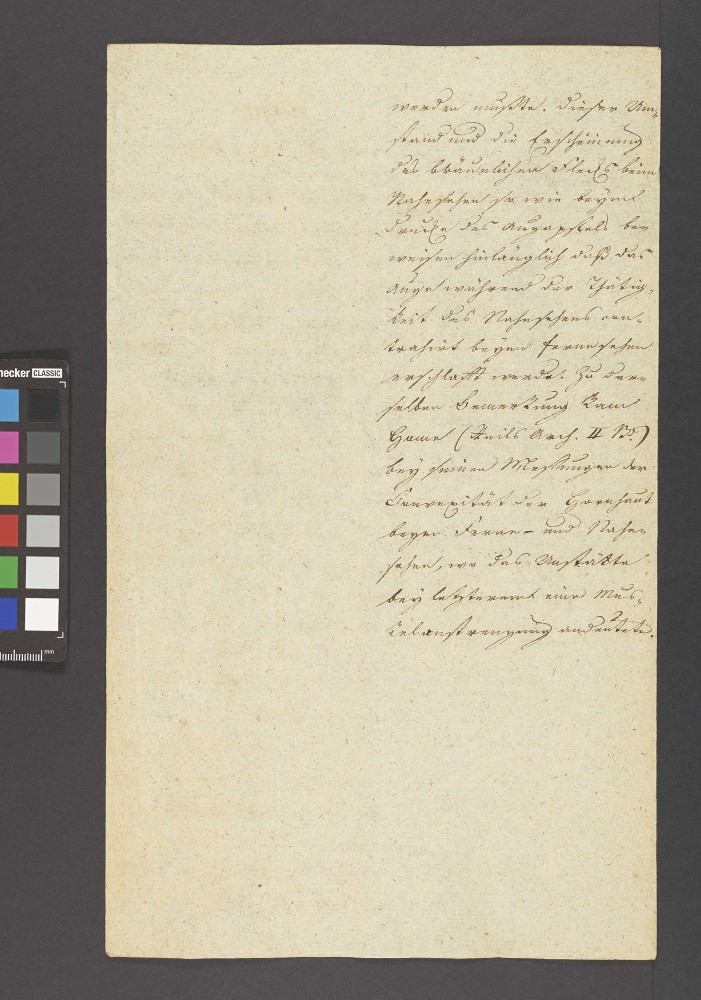 werden müßte. Dieser Um-
stand und die Erscheinung
des bräunlichen Flecks beim
Nahesehen so wie beym
Drucke des Augapfels be-
weisen hinlänglich daß das
Auge während der Thätig-
keit des Nahesehens con-
trahirt beym Fernesehen
erschlafft werde. Zu der-
selben Bemerkung kam
Home (Reils Arch. II Bd.)
bey seinen Messungen der
Convexität der Hornhaut
beym Ferne- und Nahe-
sehen, wo das Unstäte
bey letzterem eine Mus-
kelanstrengung andeutete.
hecker CLASSIC
mm